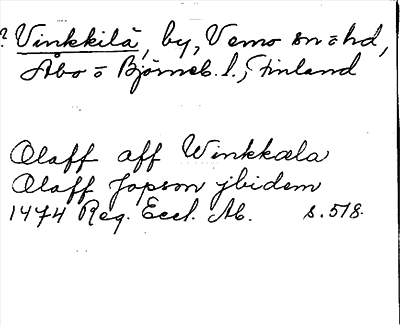 ? Vinkkilä, by, Vemo sn o hd,
Åbo o Björneb. l., Finland
Olaff aff Winkkala
Olaff Japson jbidem
1474 Reg. Eccl. Ab. s. 518.